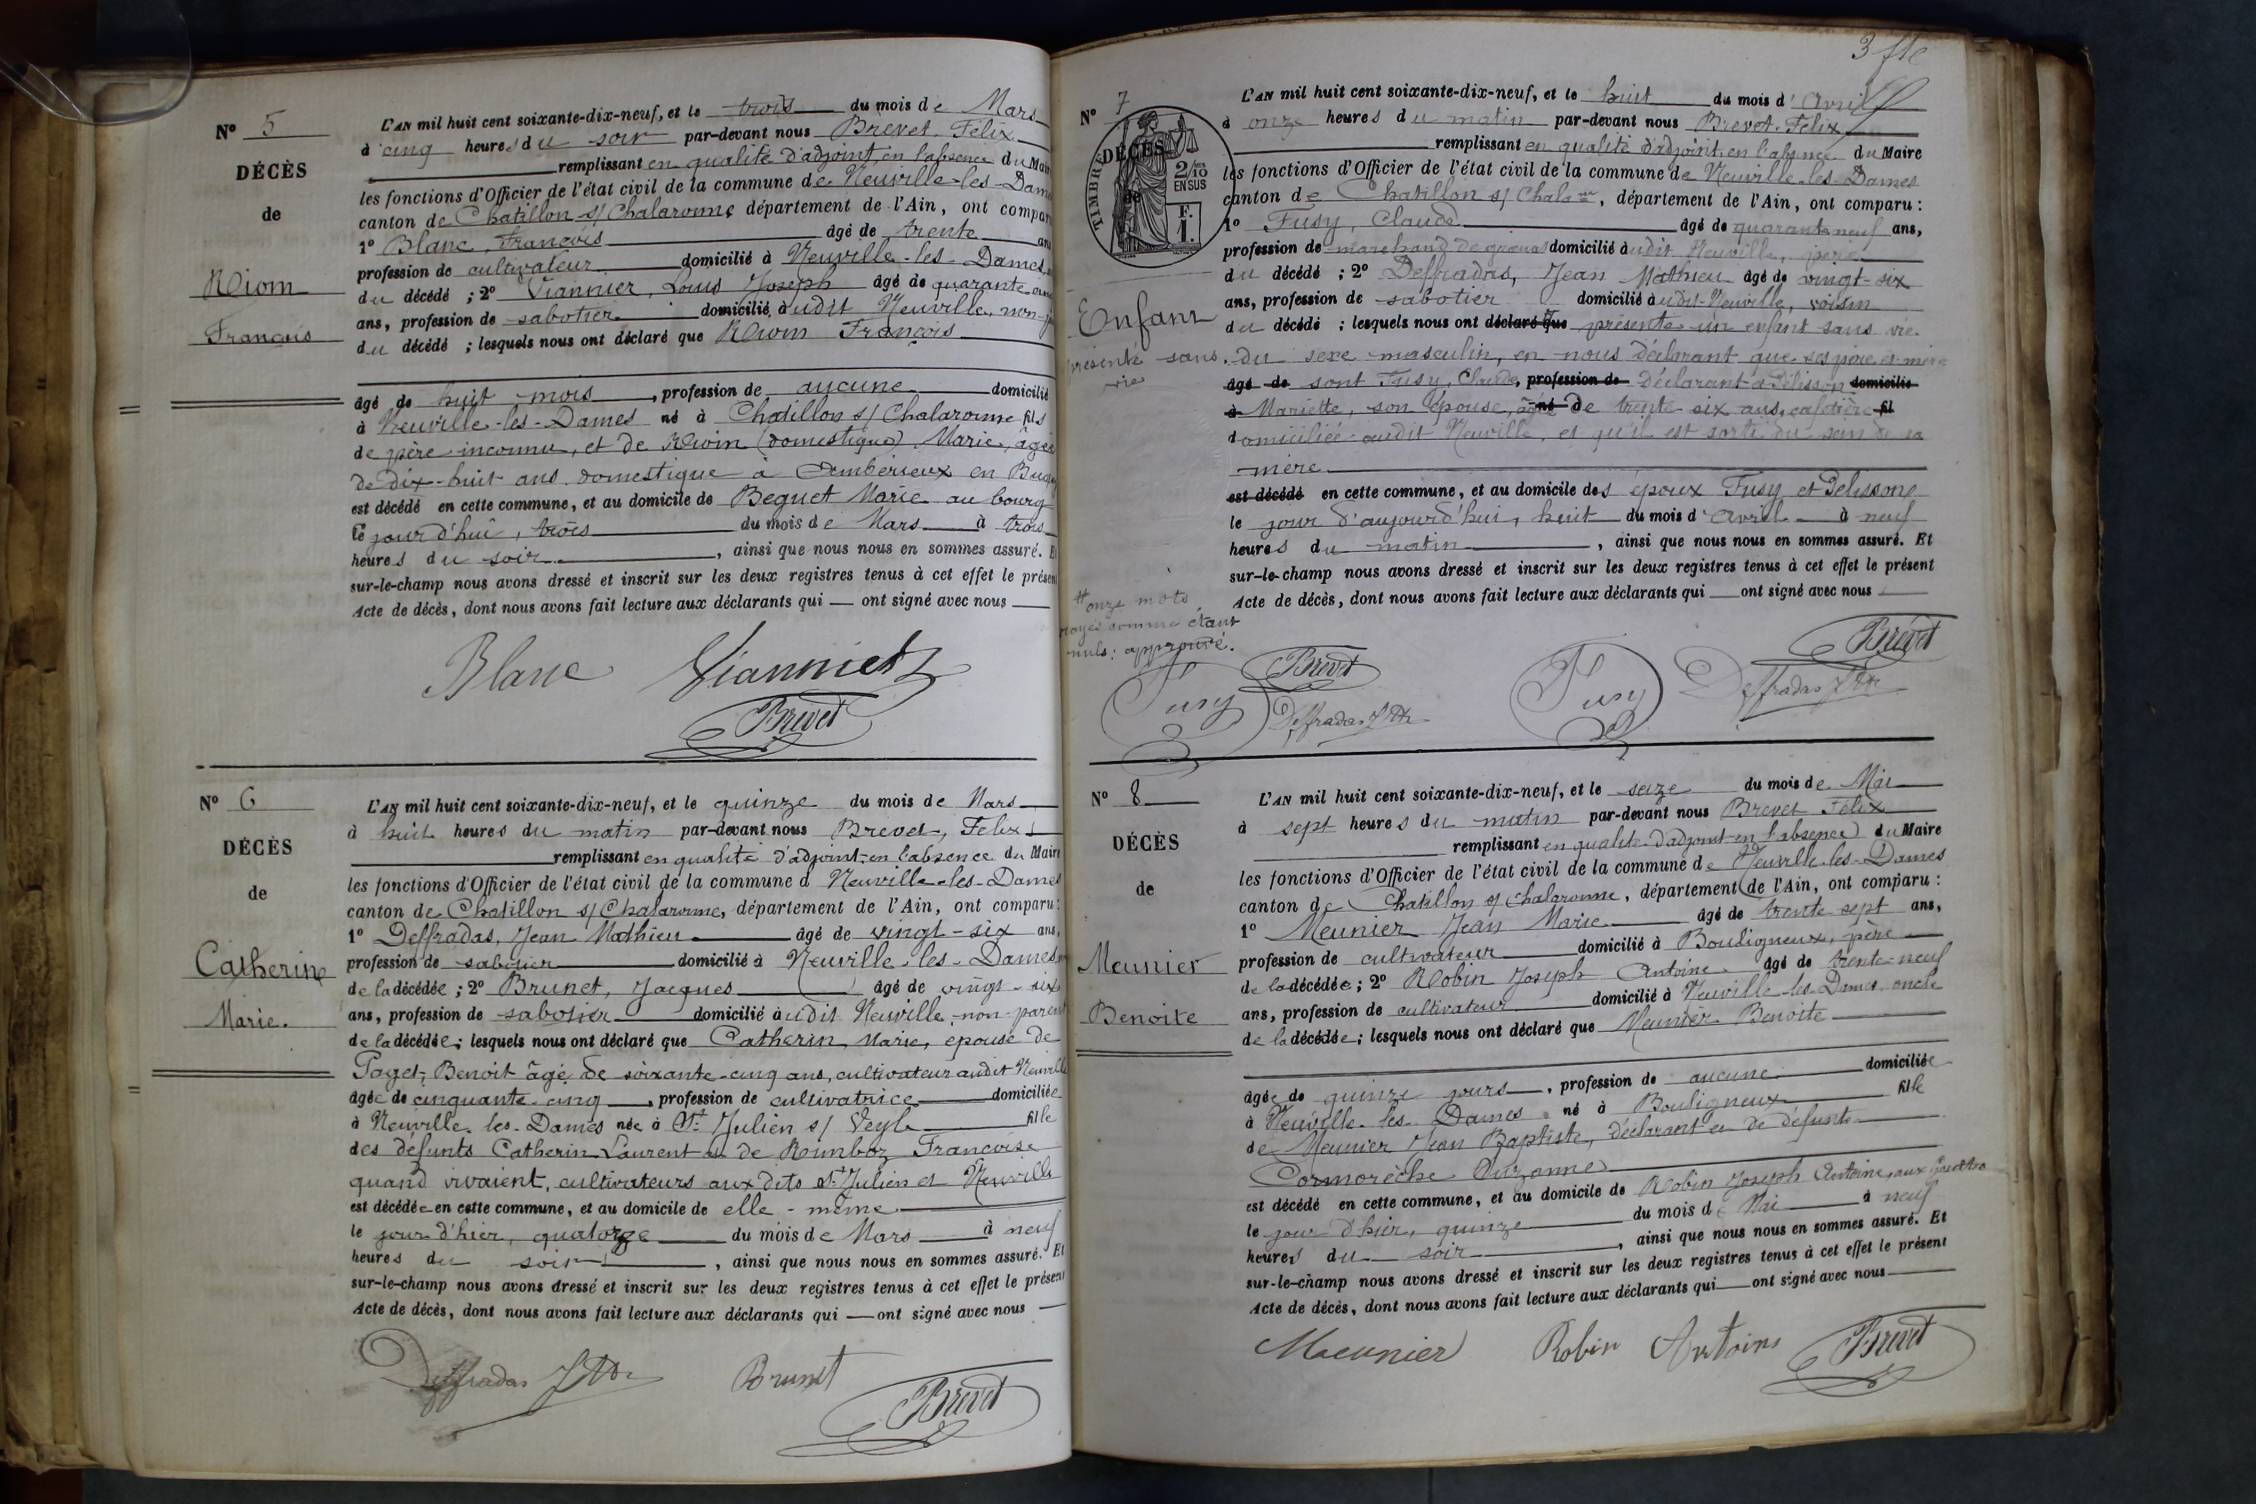 N° 5
DÉCÈS
de
Riom
François
L'AN mil huit cent soixante-dix-neuf, et le trois du mois de Mars
à cinq heures du soir par-devant nous Brevet, Félix
remplissant en qualité d'adjoint, en l'absence du Maire
les fonctions d'Officier de l'état civil de la commune de Neuville-les-Dames
canton de Chatillon s/ Chalaronne département de l'Ain, ont comparu
1° Blanc, François âgé de trente ans
profession de cultivateur domicilié à Neuville-les-Dames
du décédé ; 2° Viannier, Louis Joseph âgé de quarante
ans, profession de sabotier domicilié audit Neuville, non
du décédé ; lesquels nous ont déclaré que Riom François
âgé de huit mois, profession de aucune domicilié
à Neuville-les-Dames né à Chatillon s/ Chalaronne fils
de père inconnu, et de Rioin (domestique) Marie, âgée
de dix-huit ans domestique à Ambérieux en Bugey
est décédé en cette commune, et au domicile de Beguet Marie au bourg
le jour d'hui, trois du mois de Mars à trois
heures du soir, ainsi que nous nous en sommes assuré. Et
sur-le-champ nous avons dressé et inscrit sur les deux registres tenus à cet effet le présent
Acte de décès, dont nous avons fait lecture aux déclarants qui — ont signé avec nous
Blanc Viannier
Brevet
N° 6
DÉCÈS
de
Catherin
Marie.
L'AN mil huit cent soixante-dix-neuf, et le quinze du mois de Mars
à huit heures du matin par-devant nous Brevet, Félix
remplissant en qualité d'adjoint en l'absence du Maire
les fonctions d'Officier de l'état civil de la commune d Neuville-les-Dames
canton de Chatillon s/ Chalaronne, département de l'Ain, ont comparu :
1° Deffradas, Jean Mathieu âgé de vingt-six ans,
profession de sabotier domicilié à Neuville-les-Dames
de la décédée ; 2° Brunet, Jacques âgé de vingt-six
ans, profession de sabotier domicilié audit Neuville, non-parent
de la décédée ; lesquels nous ont déclaré que Catherin Marie, épouse de
Paget, Benoit âgé de soixante-cinq ans, cultivateur audit Neuville
âgée de cinquante-cinq, profession de cultivatrice domiciliée
à Neuville-les-Dames née à St Julien s/ Veyle fille
des défunts Catherin Laurent et de Rimboz Françoise
quand vivaient, cultivateurs aux dits St Julien et Neuville
est décédée en cette commune, et au domicile de elle-même
le jour d'hier, quatorze du mois de Mars à neuf
heures du soir, ainsi que nous nous en sommes assuré. Et
sur-le-champ nous avons dressé et inscrit sur les deux registres tenus à cet effet le présent
Acte de décès, dont nous avons fait lecture aux déclarants qui — ont signé avec nous —
Deffradas JM Brunet
Brevet
3 fle
N° 7
DÉCÈS
de
TIMBRE
2/10
EN SUS
F.
1.
Enfant
présenté sans
vie
L'AN mil huit cent soixante-dix-neuf, et le huit du mois d' Avril
à onze heures du matin par-devant nous Brevet, Félix
remplissant en qualité d'adjoint en l'absence du Maire
les fonctions d'Officier de l'état civil de la commune de Neuville-les-Dames
canton de Chatillon s/ Chalane, département de l'Ain, ont comparu :
1° Fusy, Claude âgé de quarante neuf ans,
profession de marchand de domicilié audit Neuville, père
du décédé ; 2° Deffradas, Jean Mathieu âgé de vingt-six
ans, profession de sabotier domicilié audit-Neuville, voisin
du décédé ; lesquels nous ont déclaré que présenté un enfant sans vie
du sexe masculin, en nous déclarant que ses père et mère
âgé de sont Fusy, Claude, profession de déclarant et Pélisson domicilié
à Mariette, son épouse, âgée né de trente-six ans, cafetière fil
domiciliée audit Neuville, et qu'il est sorti du sein de sa
mère
est décédé en cette commune, et au domicile des époux Fusy et Pelisson
le jour d'aujourd'hui, huit du mois d'Avril à neuf
heures du matin, ainsi que nous nous en sommes assuré. Et
sur-le-champ nous avons dressé et inscrit sur les deux registres tenus à cet effet le présent
Acte de décès, dont nous avons fait lecture aux déclarants qui — ont signé avec nous
onze mots
rayés comme étant
nuls : approuvé.
Brevet
Fusy Brevet Deffradas JM Fusy Deffradas JM
N° 8
DÉCÈS
de
Meunier
Benoite
L'AN mil huit cent soixante-dix-neuf, et le seize du mois de Mai
à sept heures du matin par-devant nous Brevet Félix
remplissant en qualité d'adjoint en l'absence du Maire
les fonctions d'Officier de l'état civil de la commune de Neuville-les-Dames
canton de Chatillon s/ Chalaronne, département de l'Ain, ont comparu :
1° Meunier Jean Marie âgé de trente sept ans,
profession de cultivateur domicilié à Bouligneux, père
de la décédée ; 2° Robin Joseph Antoine âgé de trente-neuf
ans, profession de cultivateur domicilié à Neuville les Dames oncle
de la décédée ; lesquels nous ont déclaré que Meunier Benoite
âgée de quinze jours, profession de aucune domiciliée
à Neuville-les-Dames né à Bouligneux fille
de Meunier Jean Baptiste, déclarant et de défunte
Cormorèche Suzanne
est décédé en cette commune, et au domicile de Robin Joseph Antoine, aux
le jour d'hier, quinze du mois de Mai à neuf
heures du soir, ainsi que nous nous en sommes assuré. Et
sur-le-champ nous avons dressé et inscrit sur les deux registres tenus à cet effet le présent
Acte de décès, dont nous avons fait lecture aux déclarants qui — ont signé avec nous
Meunier Robin Antoine Brevet